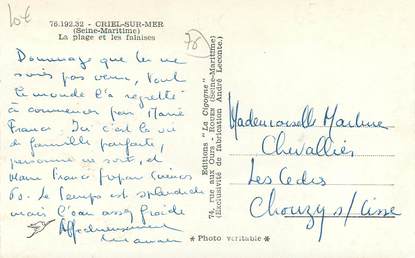 10€
76.192.32 - CRIEL-SUR-MER
(Seine-Maritime)
La plage et les falaises
76
Dommage que tu ne
sois pas venu, tout
le monde l'a regretté
à commencer par Marie
France. Ici c'est la vie
de famille parfaite,
personne ne sort, et
Marie France
60. Le temps est splendide
mais l'eau assez froide
Affectueusement
Editions "La Cigogne"
74, rue aux Ours - Rouen (Seine-Maritime)
(Exclusivité de fabrication André Leconte.)
* Photo véritable *
Mademoiselle Martine
Chevallier
Les Cèdres
Chouzy s/Cisse